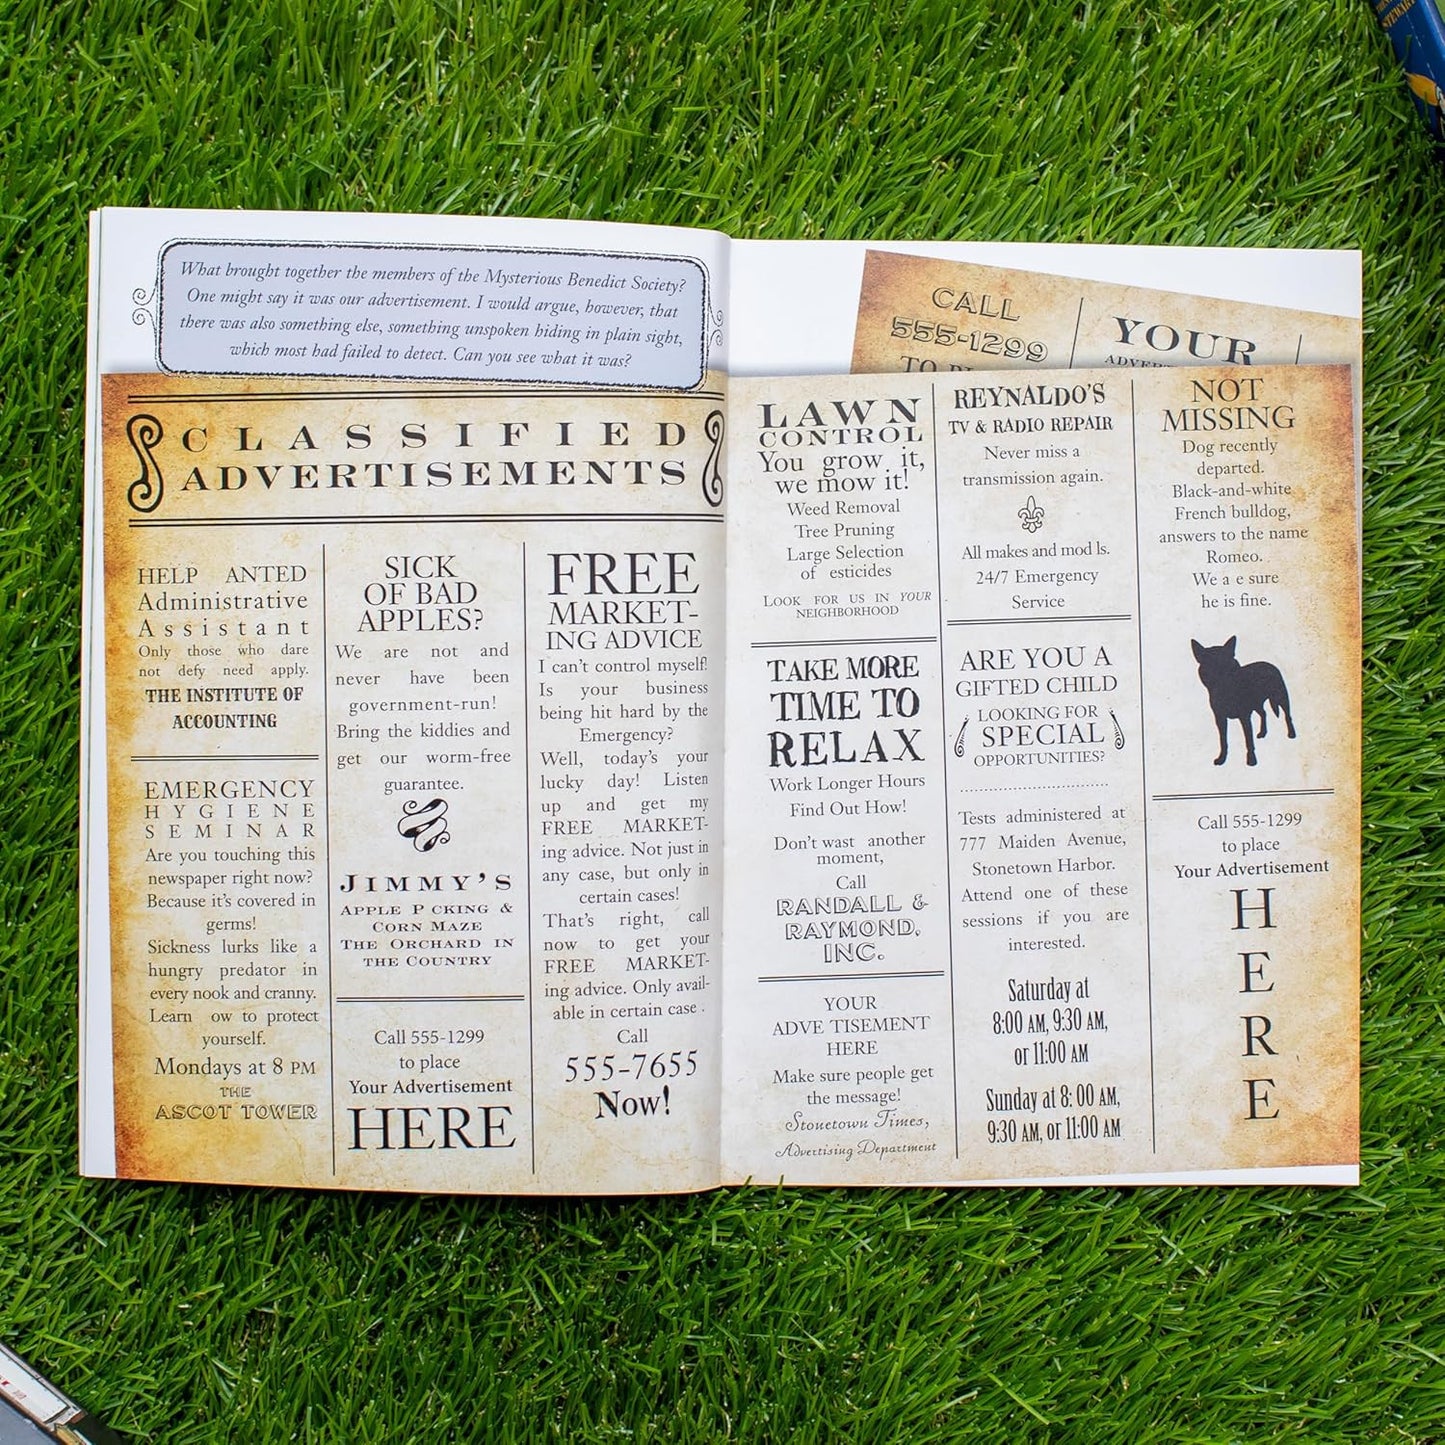 What brought together the members of the Mysterious Benedict Society?
One might say it was our advertisement. I would argue, however, that
there was also something else, something unspoken hiding in plain sight,
which most had failed to detect. Can you see what it was?
CLASSIFIED
ADVERTISEMENTS
HELP ANTED
Administrative
Assistant
Only those who dare
not defy need apply.
THE INSTITUTE OF
ACCOUNTING
EMERGENCY
HYGIENE
SEMINAR
Are you touching this
newspaper right now?
Because it's covered in
germs!
Sickness lurks like a
hungry predator in
every nook and cranny.
Learn ow to protect
yourself.
Mondays at 8 PM
THE
ASCOT TOWER
SICK
OF BAD
APPLES?
We are not and
never have been
government-run!
Bring the kiddies and
get our worm-free
guarantee.
JIMMY'S
APPLE P CKING &
CORN MAZE
THE ORCHARD IN
THE COUNTRY
Call 555-1299
to place
Your Advertisement
HERE
FREE
MARKET-
ING ADVICE
I can't control myself!
Is your business
being hit hard by the
Emergency?
Well, today's your
lucky day! Listen
up and get my
FREE MARKET-
ing advice. Not just in
any case, but only in
certain cases!
That's right, call
now to get your
FREE MARKET-
ing advice. Only avail-
able in certain case .
Call
555-7655
Now!
CALL
555-1299
YOUR
LAWN
CONTROL
You grow it,
we mow it!
Weed Removal
Tree Pruning
Large Selection
of esticides
LOOK FOR US IN YOUR
NEIGHBORHOOD
TAKE MORE
TIME TO
RELAX
Work Longer Hours
Find Out How!
Don't wast another
moment,
Call
RANDALL &
RAYMOND,
INC.
YOUR
ADVE TISEMENT
HERE
Make sure people get
the message!
Stonetown Times,
Advertising Department
REYNALDO'S
TV & RADIO REPAIR
Never miss a
transmission again.
All makes and mod ls.
24/7 Emergency
Service
ARE YOU A
GIFTED CHILD
LOOKING FOR
SPECIAL
OPPORTUNITIES?
Tests administered at
777 Maiden Avenue,
Stonetown Harbor.
Attend one of these
sessions if you are
interested.
Saturday at
8:00 AM, 9:30 AM,
or 11:00 AM
Sunday at 8: 00 AM,
9:30 AM, or 11:00 AM
NOT
MISSING
Dog recently
departed.
Black-and-white
French bulldog,
answers to the name
Romeo.
We a e sure
he is fine.
Call 555-1299
to place
Your Advertisement
H
E
R
E
STEWART